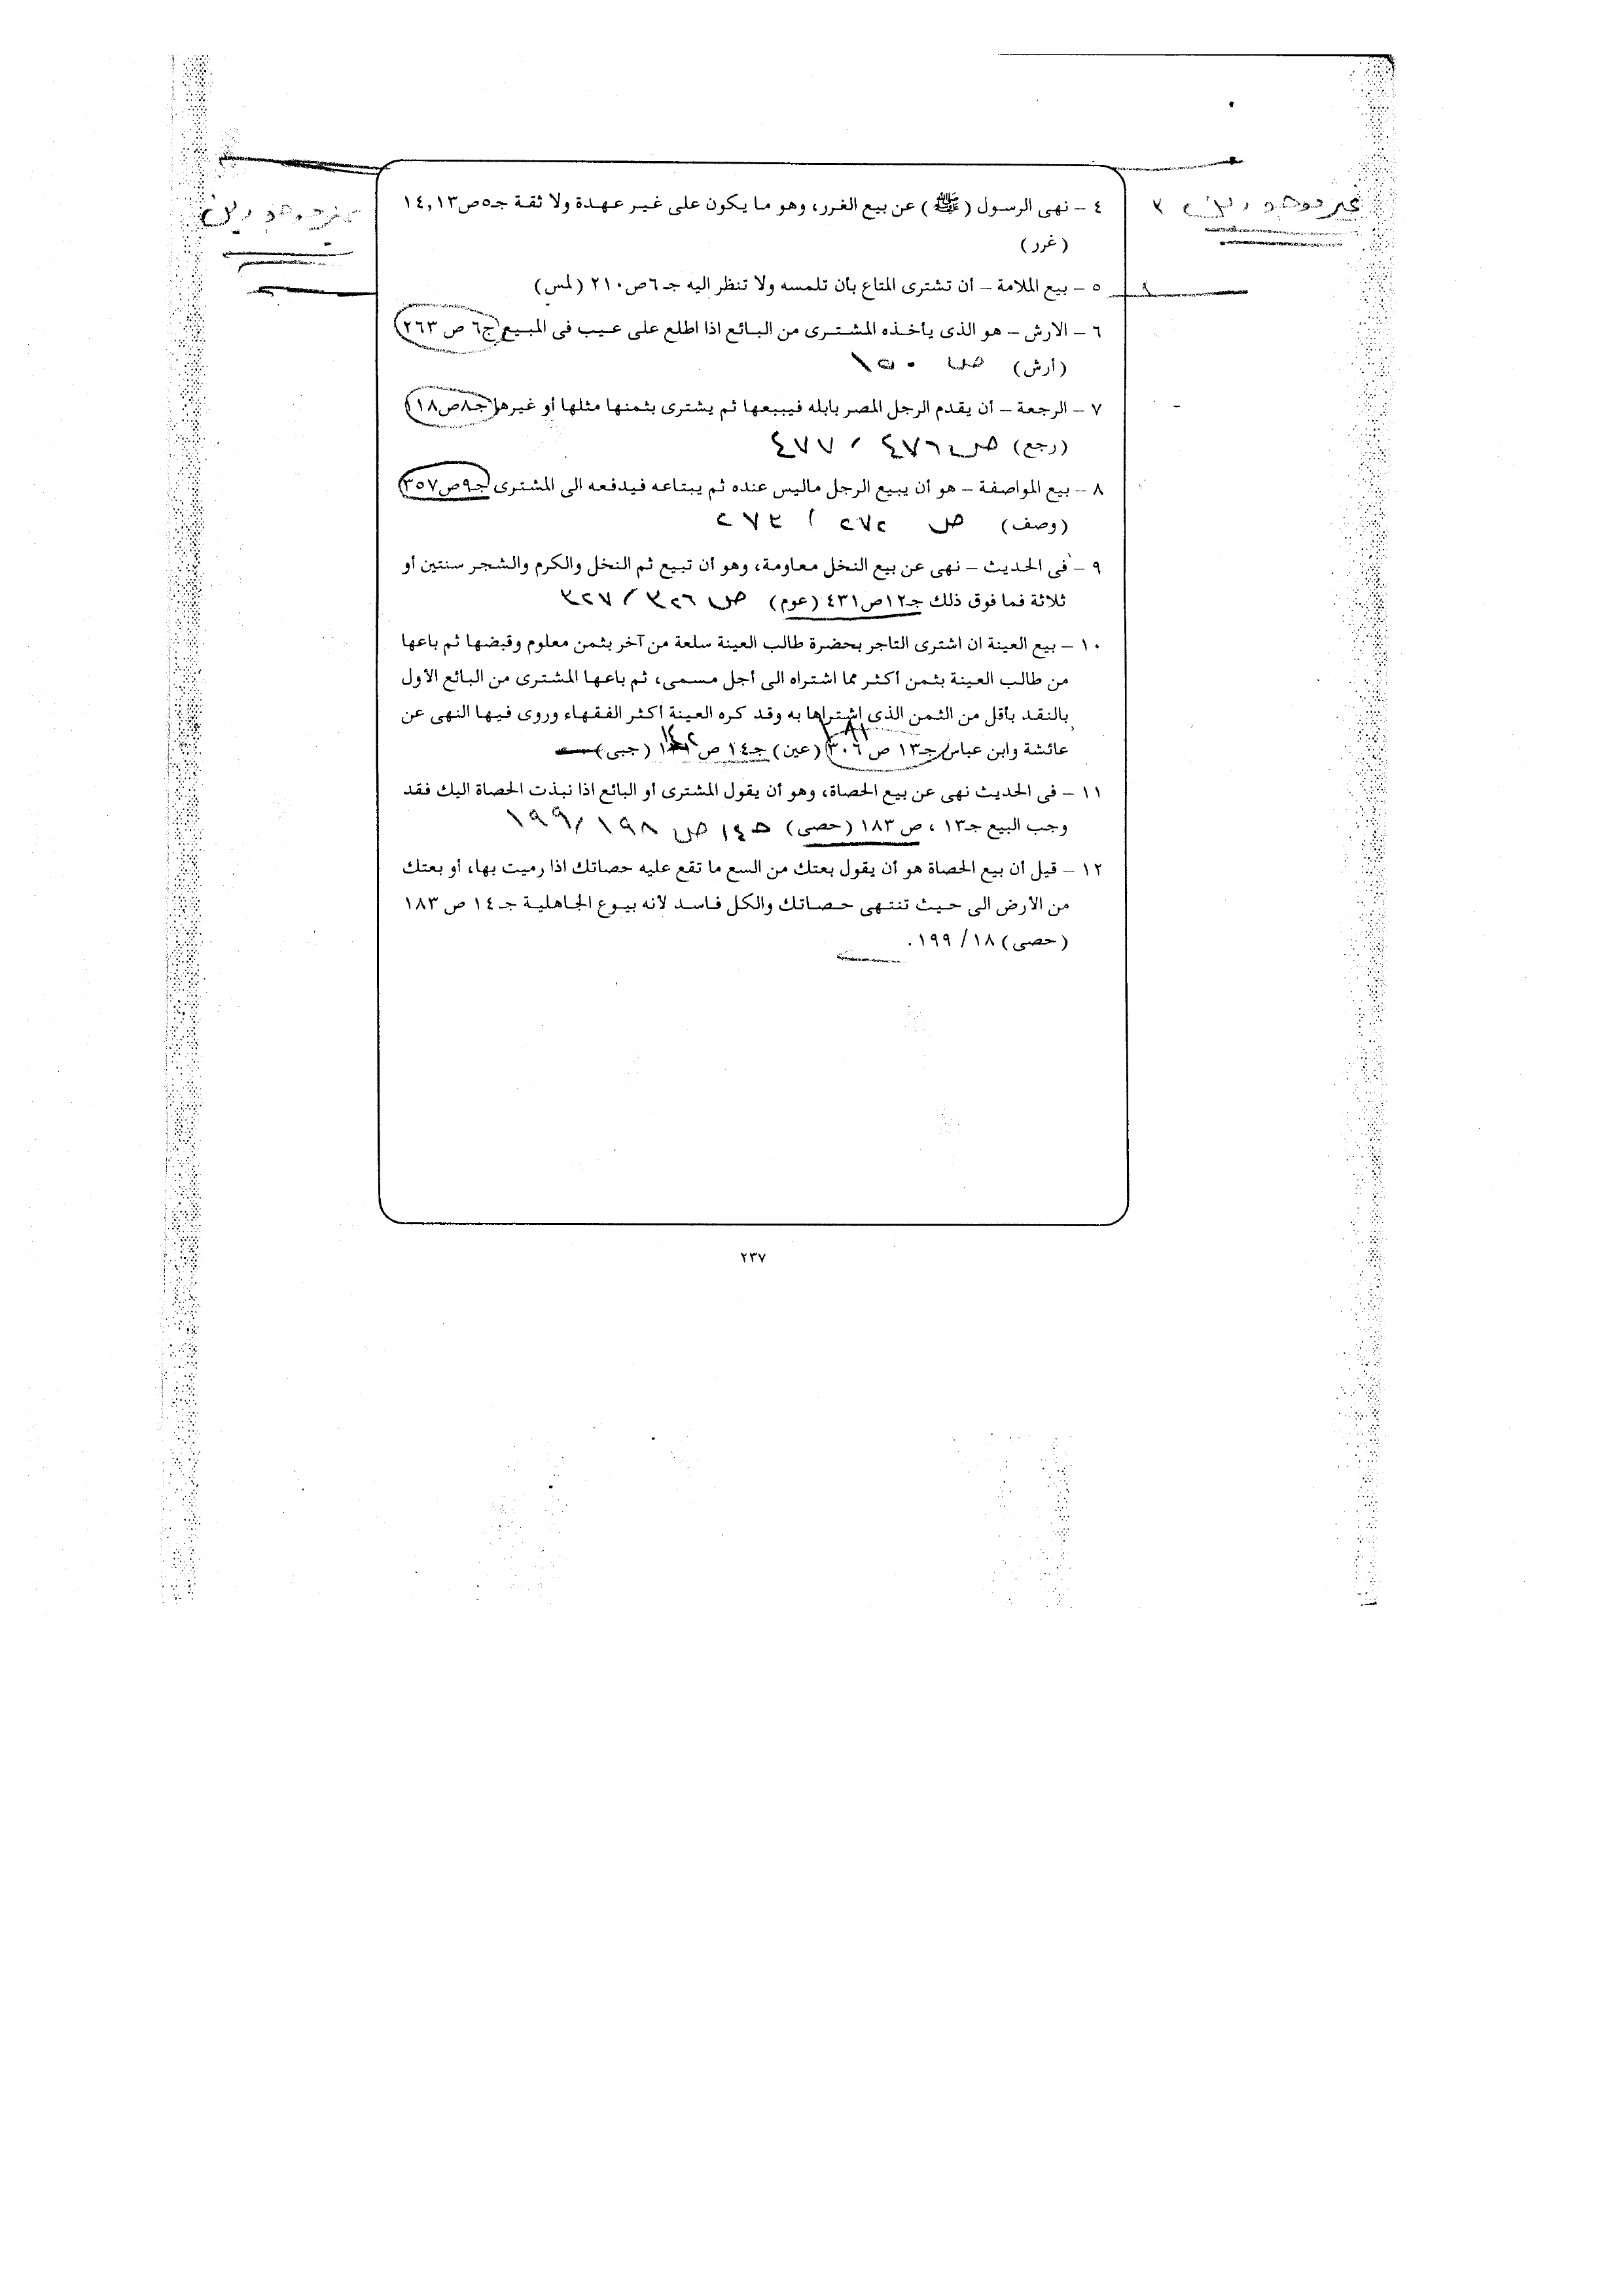 ٤ – نهى الرسول (ﷺ) عن بيع الغرر، وهو ما يكون على غير عهدة ولا ثقة جـ٥ص١٤,١٣
(غرر)
٥ – بيع الملامة – أن تشترى المتاع بأن تلمسه ولا تنظر اليه جـ٦ص٢١٠ (لمس)
٦ – الارش – هو الذى يأخذه المشترى من البائع اذا اطلع على عيب فى المبيع جـ٦ ص ٢٦٣
(أرش) ص ١٥٠
٧ – الرجعة – أن يقدم الرجل المصر بابله فيبيعها ثم يشترى بثمنها مثلها أو غيرها جـ٨ص١٨
(رجع) ص ٤٧٦ ، ٤٧٧
٨ – بيع المواصفة – هو أن يبيع الرجل ماليس عنده ثم يبتاعه فيدفعه الى المشترى جـ٩ص٣٥٧
(وصف) ص ٢٧٢ / ٢٧٣
٩ – فى الحديث – نهى عن بيع النخل معاومة، وهو أن تبيع ثم النخل والكرم والشجر سنتين أو
ثلاثة فما فوق ذلك جـ١٢ص٤٣١ (عوم) ص ٣٢٦ / ٣٢٧
١٠ – بيع العينة ان اشترى التاجر بحضرة طالب العينة سلعة من آخر بثمن معلوم وقبضها ثم باعها
من طالب العينة بثمن أكثر مما اشتراه الى أجل مسمى، ثم باعها المشترى من البائع الأول
بالنقد بأقل من الثمن الذى اشتراها به وقد كره العينة أكثر الفقهاء وروى فيها النهى عن
عائشة وابن عباس جـ١٣ ص ٣٠٦ (عين) جـ١٤ ص (جبى)
١١ – فى الحديث نهى عن بيع الحصاة، وهو أن يقول المشترى أو البائع اذا نبذت الحصاة اليك فقد
وجب البيع جـ١٣ ، ص ١٨٣ (حصى) حـ ١٤ ص ١٩٨ / ١٩٩
١٢ – قيل أن بيع الحصاة هو أن يقول بعتك من السع ما تقع عليه حصاتك اذا رميت بها، أو بعتك
من الأرض الى حيث تنتهى حصاتك والكل فاسد لأنه بيوع الجاهلية جـ١٤ ص ١٨٣
(حصى) ١٨ / ١٩٩ .
٢٣٧